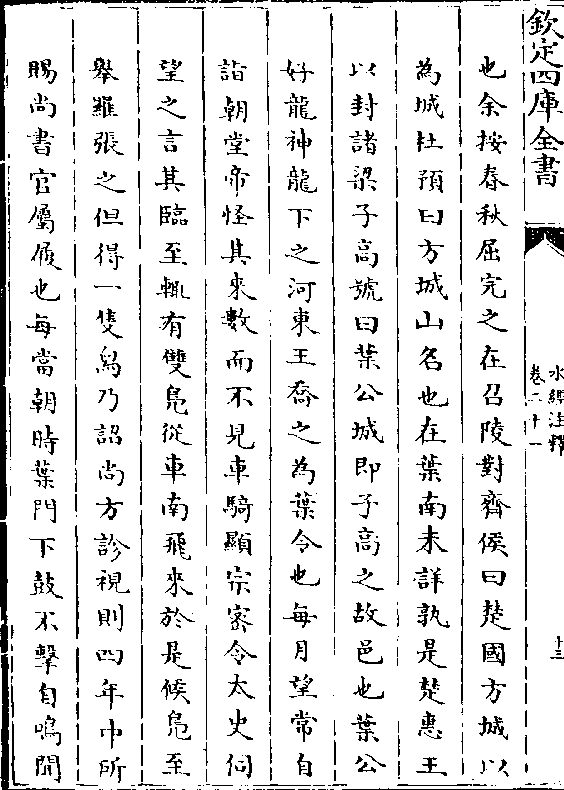 欽定四庫全書
水經注釋
卷二十一
十三
也余按春秋屈完之在召陵對齊侯曰楚國方城以
為城杜預曰方城山名也在葉南未詳孰是楚惠王
以封諸梁子高號曰葉公城即子高之故邑也葉公
好龍神龍下之河東王喬之為葉令也每月望常自
詣朝堂帝怪其來數而不見車騎顯宗宻令太史伺
望之言其臨至輒有雙鳬從車南飛來於是候鳬至
舉羅張之但得一隻舄乃詔尚方診視則四年中所
賜尚書官屬履也每當朝時葉門下鼓不擊自鳴聞